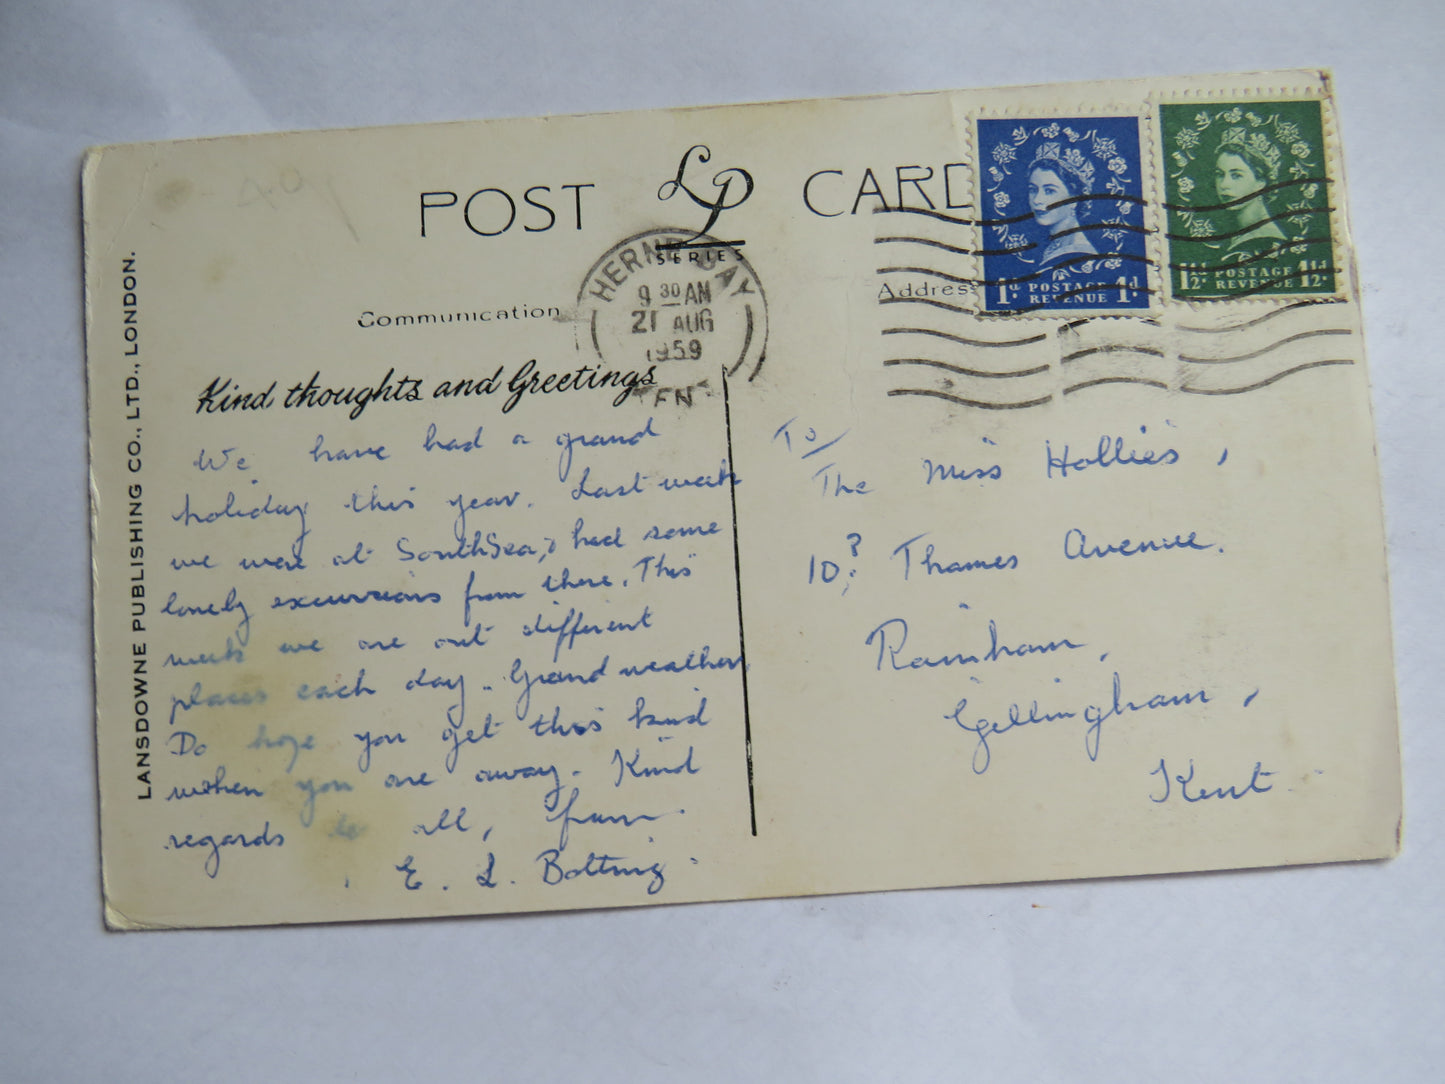 POST LP CARD
SERIES
HERNE BAY
9 30 AM
21 AUG
1959
KENT
Communication
Address
1d POSTAGE REVENUE 1d
1½d POSTAGE REVENUE 1½d
LANSDOWNE PUBLISHING CO., LTD., LONDON.
Kind thoughts and Greetings
We have had a grand
holiday this year. Last week
we were at SouthSea, & had some
lovely excursions from there. This
week we are out different
places each day. Grand weather,
Do hope you get this kind
when you are away. Kind
regards to all, from
E. L. Botting.
To/
The Miss Hollies,
10? Thames Avenue.
Rainham,
Gillingham,
Kent.